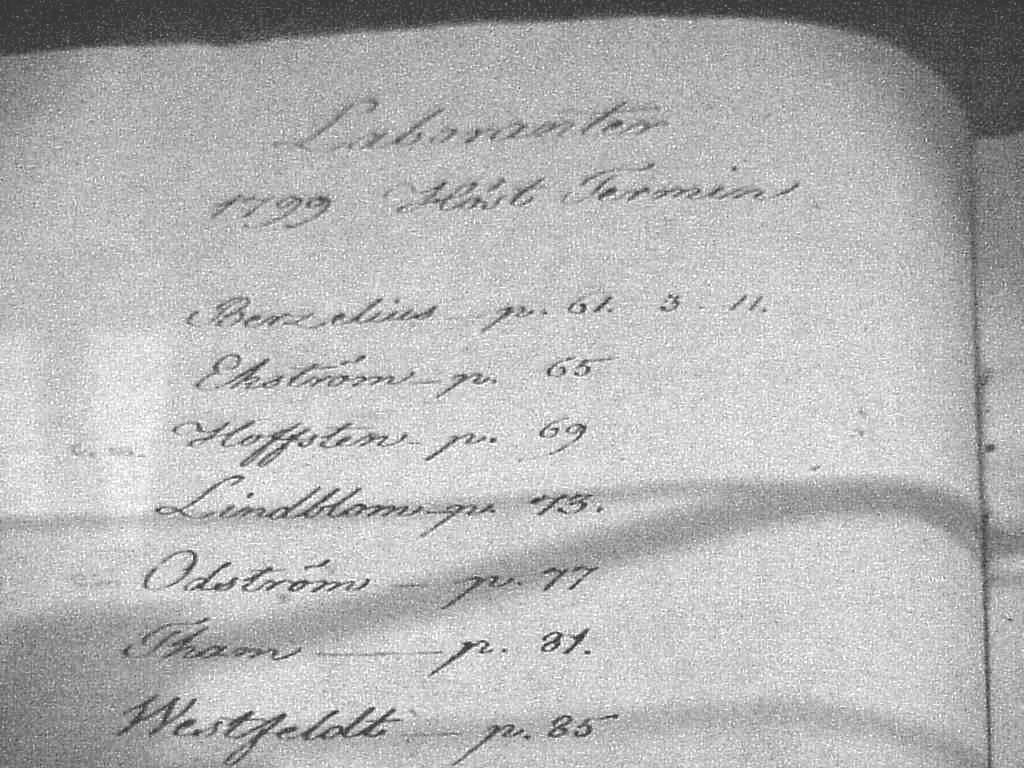 Laboranter
1799 Höst Termin
Berzelius p. 61. 3 - 11.
Ekström p. 65
Hoffsten p. 69
Lindblom p. 73.
Odström — p. 77
Tham — p. 81.
Westfeldt — p. 85